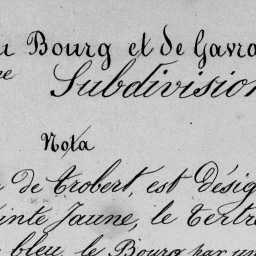 u Bourg et de Gavra
ne Subdivision
Nota
de Trobert, est Désig
inte Jaune, le Tertre
bleu, le Bourg par un